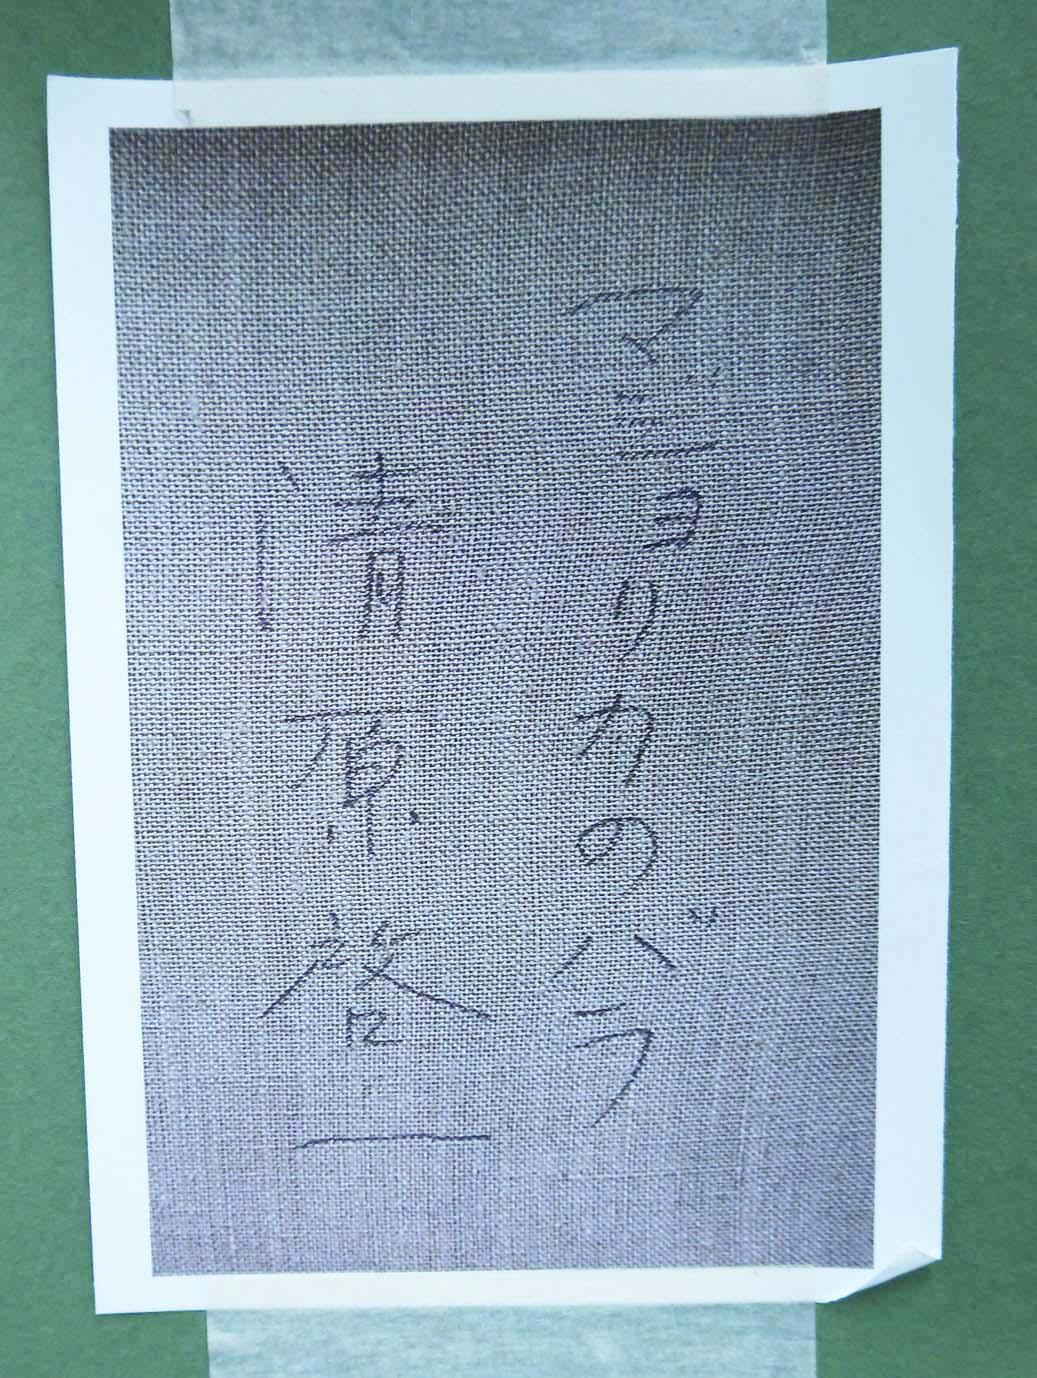 マジョリカのバラ
清原啓一